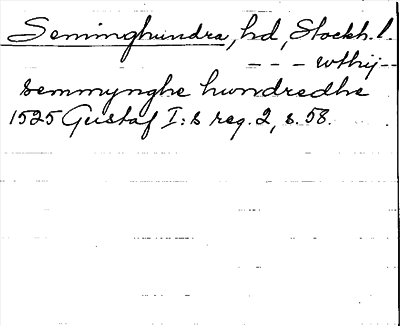 Seminghundra, hd, Stockh. l.
--- wthij--
semmynghe hundredhe
1525 Gustaf I:s reg. 2, s. 58.